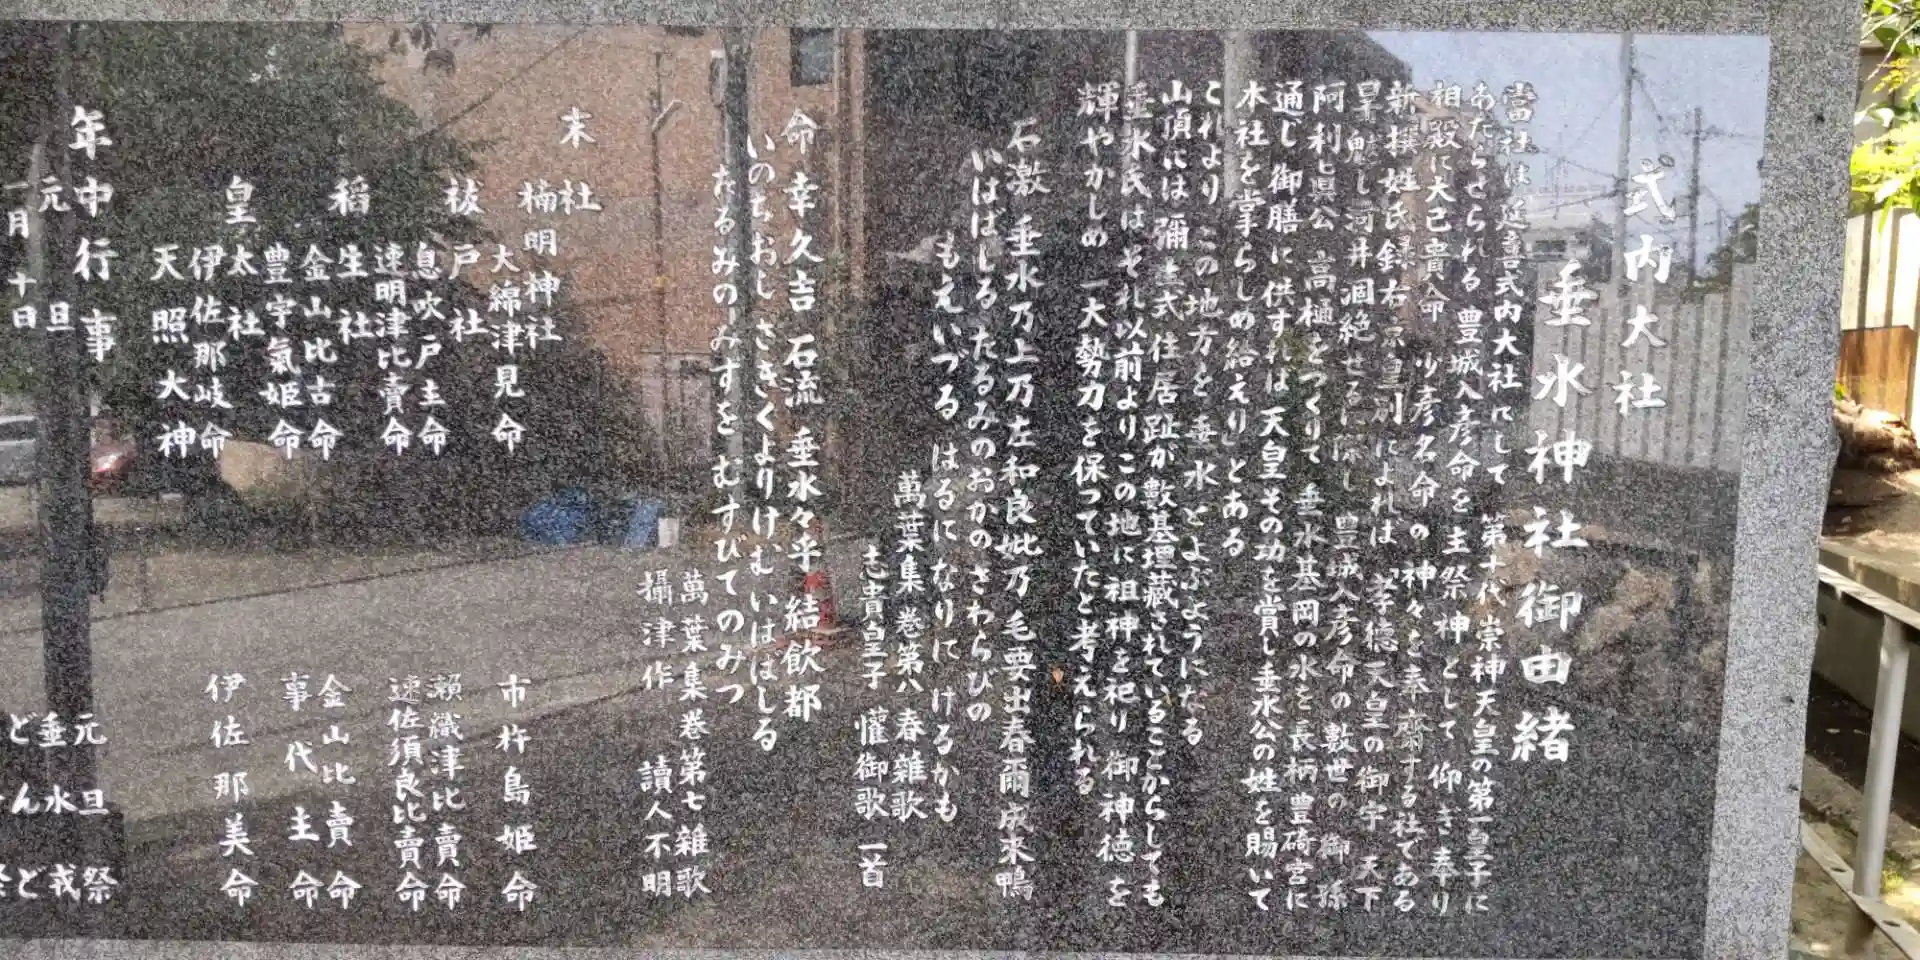 式内大社
垂水神社御由緒
當社は延喜式内大社にして 第十代崇神天皇の第一皇子に
あたらせられる 豊城入彦命を主祭神として 仰ぎ奉り
相殿に大己貴命 少彦名命 の神々を奉齋する社である
新撰姓氏録右京皇別によれば「孝徳天皇の御宇 天下
旱魃し河井涸絶せるに際し 豊城入彦命の数世の御孫
阿利七県公 高樋をつくりて 垂水基岡の水を長柄豊碕宮に
通じ御膳に供すれば天皇その功を賞し垂水公の姓を賜いて
本社を掌らしめ給えり」とある
これより この地方を垂水とよぶようになる
山頂には彌生式住居趾が數基埋蔵されていることからしても
垂水氏はそれ以前よりこの地に祖神を祀り御神徳を
輝やかしめ 一大勢力を保っていたと考えられる
石激 垂水乃上乃左和良妣乃毛要出春爾成来鴨
いはばしる たるみのおかのさわらびの
もえいづる はるになりにけるかも
萬葉集 巻第八 春雑歌
志貴皇子 懽御歌 一首
命幸久吉 石流 垂水々乎 結飲都
いのちおし さきくよりけむ いははしる
たるみのーみずをむすびてのみつ
萬葉集巻第七雑歌
攝津作 讀人不明
末社
楠明神社
大綿津見命 市杵島姫命
祓戸社
息吹戸主命 瀬織津比賣命
速明津比賣命 速佐須良比賣命
稻生社
金山比古命 金山比賣命
豊宇氣姫命 事代主命
皇太社
伊佐那岐命 伊佐那美命
天照大神
年中行事
元旦 元旦祭
一月十日 垂水戎